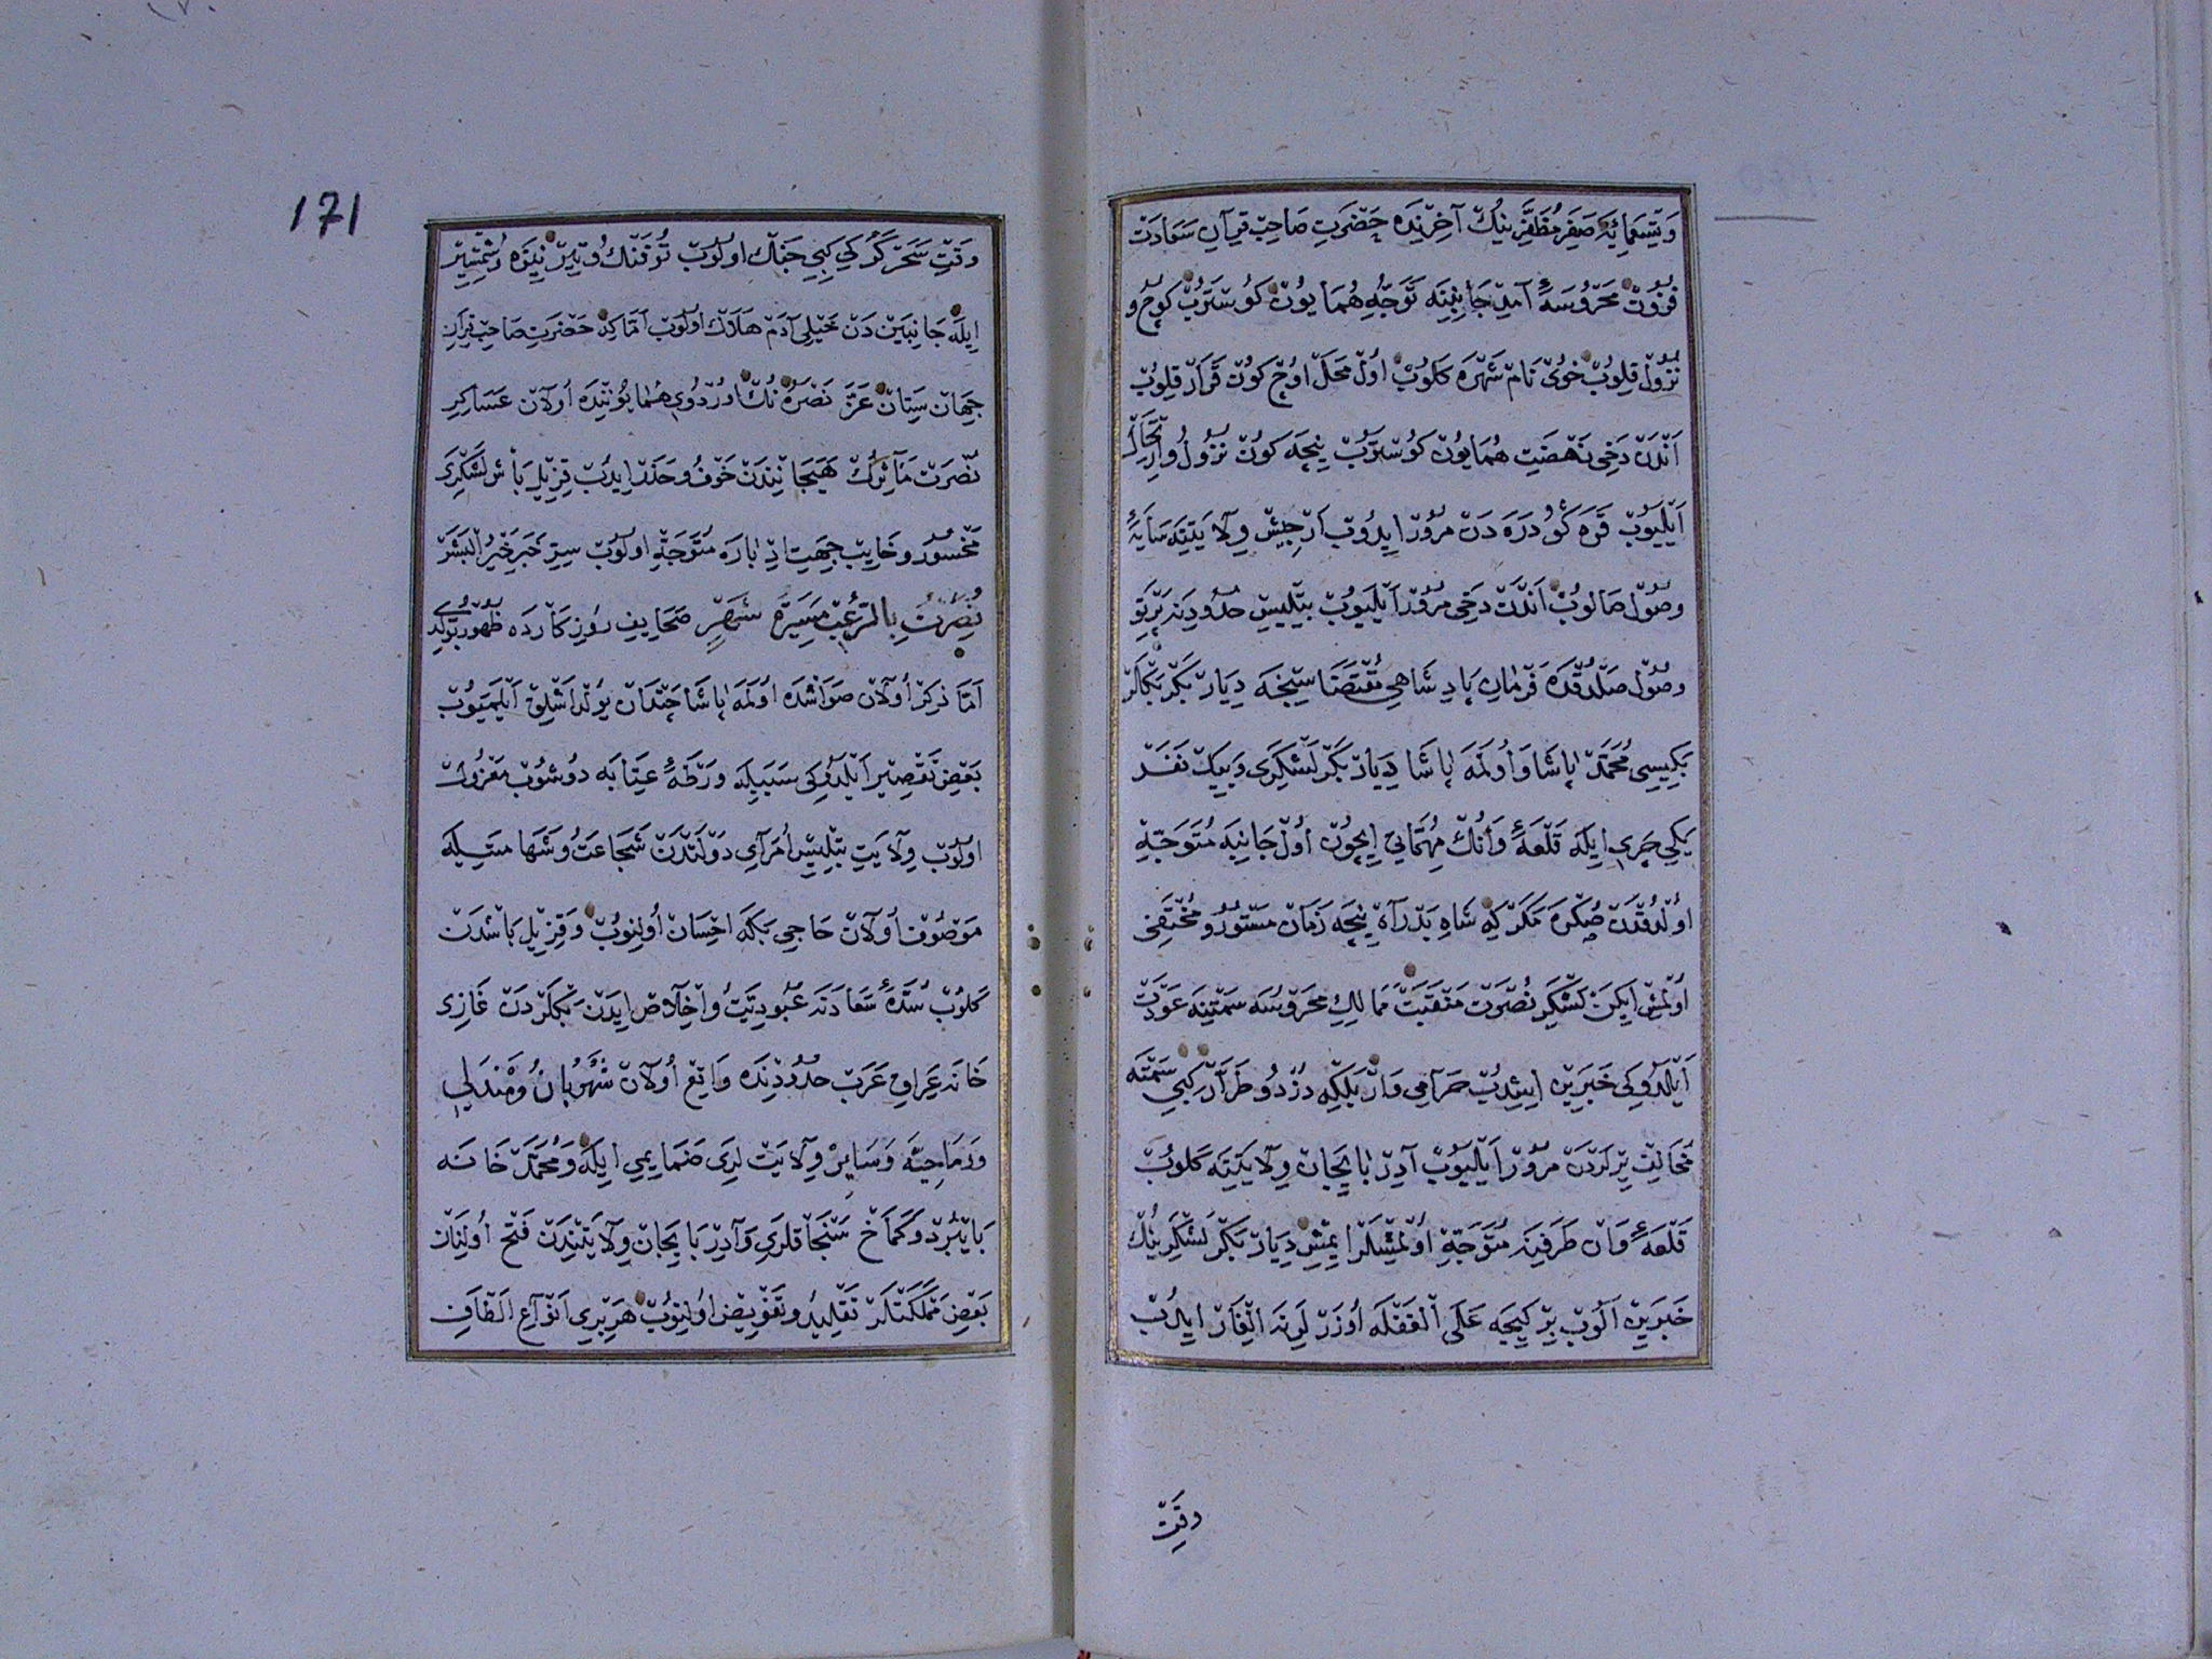 وَتِسْعَمِائِهٔ صَفَرِ مُظَفَّرِينُكْ آخِرِنْدَه حَضْرَتِ صَاحِبْ قِرَآنِ سَعَادَتْ
فُزُونْ مَحْرُوسَهٔ آمِدْ جَانِبِنَه تَوَجُّهِ هُمَايُونْ كُوسْتَرُبْ كُوچُ و
نُزُولْ قِلُوبْ خُوىْ نَامْ شَهْرَه كَلُوبْ اُولْ مَحَلْ اُوچْ كُونْ قَرَارْ قِلُوبْ
اَنْدَنْ دَخِى نَهْضَتِ هُمَايُونْ كُوسْتَرُبْ نِيچَه كُونْ نُزُولُ وارْتِحَالْ
اَيْلَيُوبْ قَرَه دَرَه دَنْ مُرُورْ ايدُوبْ اَرْجِيشْ وِلَايَتِنَه سَايَهٔ
وصُولْ صَالُوبْ اَنْدَنْ دَخِى مُرُورْ اَيْلَيُوبْ بِتْلِيسْ حُدُودِينَه پَرْتَوِ
وصُولْ صَلْدُقْدَه فَرْمَانِ پَادِشَاهِى مُقْتَضَاسِنْجَه دِيَارْ بَكْرْ بَكْلَرْ
بَكِيسِى مُحَمَّدْ پَاشَا وَاُولَمَه پَاشَا دِيَارْ بَكْرْ لَشْكَرِى وَبِيكْ نَفَرْ
يَكِي چَرِى ايلَه قَلْعَهٔ وَانُكْ مُهِمَّاتِى اِيچُونْ اُولْ جَانِبَه مُتَوَجِّهْ
اولْدُقْدَنْ صُكْرَه مَكَرْ كِه شَاهِ بَدْرَآهْ نِيچَه زَمَانْ مَسْتُورُ و مُخْتَفِى
اُولْمِشْ اِيكَنْ لَشْكَرِ نُصْرَتْ مَنْقَبَتْ مَمَالِكِ مَحْرُوسَه سَمْتِنَه عَوْدَتْ
اَيْلَدُوكِى خَبَرِينْ اِيشِدُبْ حَرَامِى وَارْ بَلْكِه دُزْدُ و طَرَّارْ كِبِى سَمْتَه
مُخَالِفْ يِرْلَرْدَنْ مُرُورْ اَيْلَيُوبْ آذِرْبَايجَانْ وِلَايَتِنَه كَلُوبْ
قَلْعَهٔ وَانْ طَرَفِينَه مُتَوَجِّهْ اُولْمِشْلَرْ ايمِشْ دِيَارْ بَكْرْ لَشْكَرِينُكْ
خَبَرِينْ آلُوبْ بِرْ كِيجَه عَلَى الْغَفْلَه اُوزَرْلَرِينَه اِلْغَارْ ايدُبْ
وَقْتِ
وَقْتِ سَحَرْ كُرْكِي كِبِي جَنْكْ اولُوبْ تُوفَنْكُ و تِيرْ نِيزَه وشَمْشِيرْ
ايلَه جَانِبَيْنْ دَنْ خَيْلِى آدَمْ هَلَاكْ اولُوبْ اَمَّا كِه حَضْرَتِ صَاحِبْ قِرَانِ
جِهَانْ سِتَانْ عَزَّ نَصْرُهُ نُكْ اُورْدُوىِ هُمَايُونِنْدَه اُولَانْ عَسَاكِرِ
نُصْرَتْ مَآثِرُكْ هَيَجَانِنْدَنْ خَوْفُ و حَذَرْ ايدُبْ قِزِيلْ بَاشْ لَشْكَرِى
مَخْسُورْ وخَايِبْ جِهَتِ اِدْبَارَه مُتَوَجِّهْ اولُوبْ سِرِّ خَبَرِ خَيْرِ الْبَشَرْ
نُصِرْتُ بِالرُّعْبِ مَسِيرَةَ شَهْرٍ صَحَايِفِ رُوزِكَارْدَه ظُهُورْ بُولْدِى
اَمَّا ذِكْرْ اُولَانْ صَوَاشْدَه اُولَمَه پَاشَا چَنْدَانْ يُولْدَاشْلِقْ اَيْلَمَيُوبْ
بَعْضِ تَقْصِيرْ اَيْلَدُوكِى سَبَبِيلَه وَرْطَهٔ عِتَابَه دُوشُوبْ مَعْزُولْ
اولُوبْ وِلَايَتِ بِتْلِيسْ اُمَرَآىِ دَوْلَتْدَنْ شَجَاعَتْ وشَهَامَتِيلَه
مَوْصُوفْ اُولَانْ حَاجِى بَكَه اِحْسَانْ اُولِنُوبْ وَقِزِيلْ بَاشْدَنْ
كَلُوبْ سُدَّهٔ سَعَادَتَه عُبُودِيَّتُ وَاِخْلَاصْ اِيدَنْ بَكْلَرْدَنْ غَازِى
خَانَه عِرَاقِ عَرَبْ حُدُودِنْدَه وَاقِعْ اُولَانْ شَهْرُبَانُ وَمَنْدَلِى
وَرُمَاحِيَّه وَسَايِرْ وِلَايَتْلَرِى ضَمَايِمِي ايلَه وَمُحَمَّدْ خَانَه
بَايْبُرْدْ وَكَمَاخْ سَنْجَاقْلَرِى وَآذِرْبَايجَانْ وِلَايَتِنْدَنْ فَتْحْ اُولِنَانْ
بَعْضِ مَمْلَكَتْلَرْ تَقْلِيدُ وتَفْوِيضْ اُولِنُوبْ هَرْبِرِى اَنْوَاعِ اَلْطَافِ
171